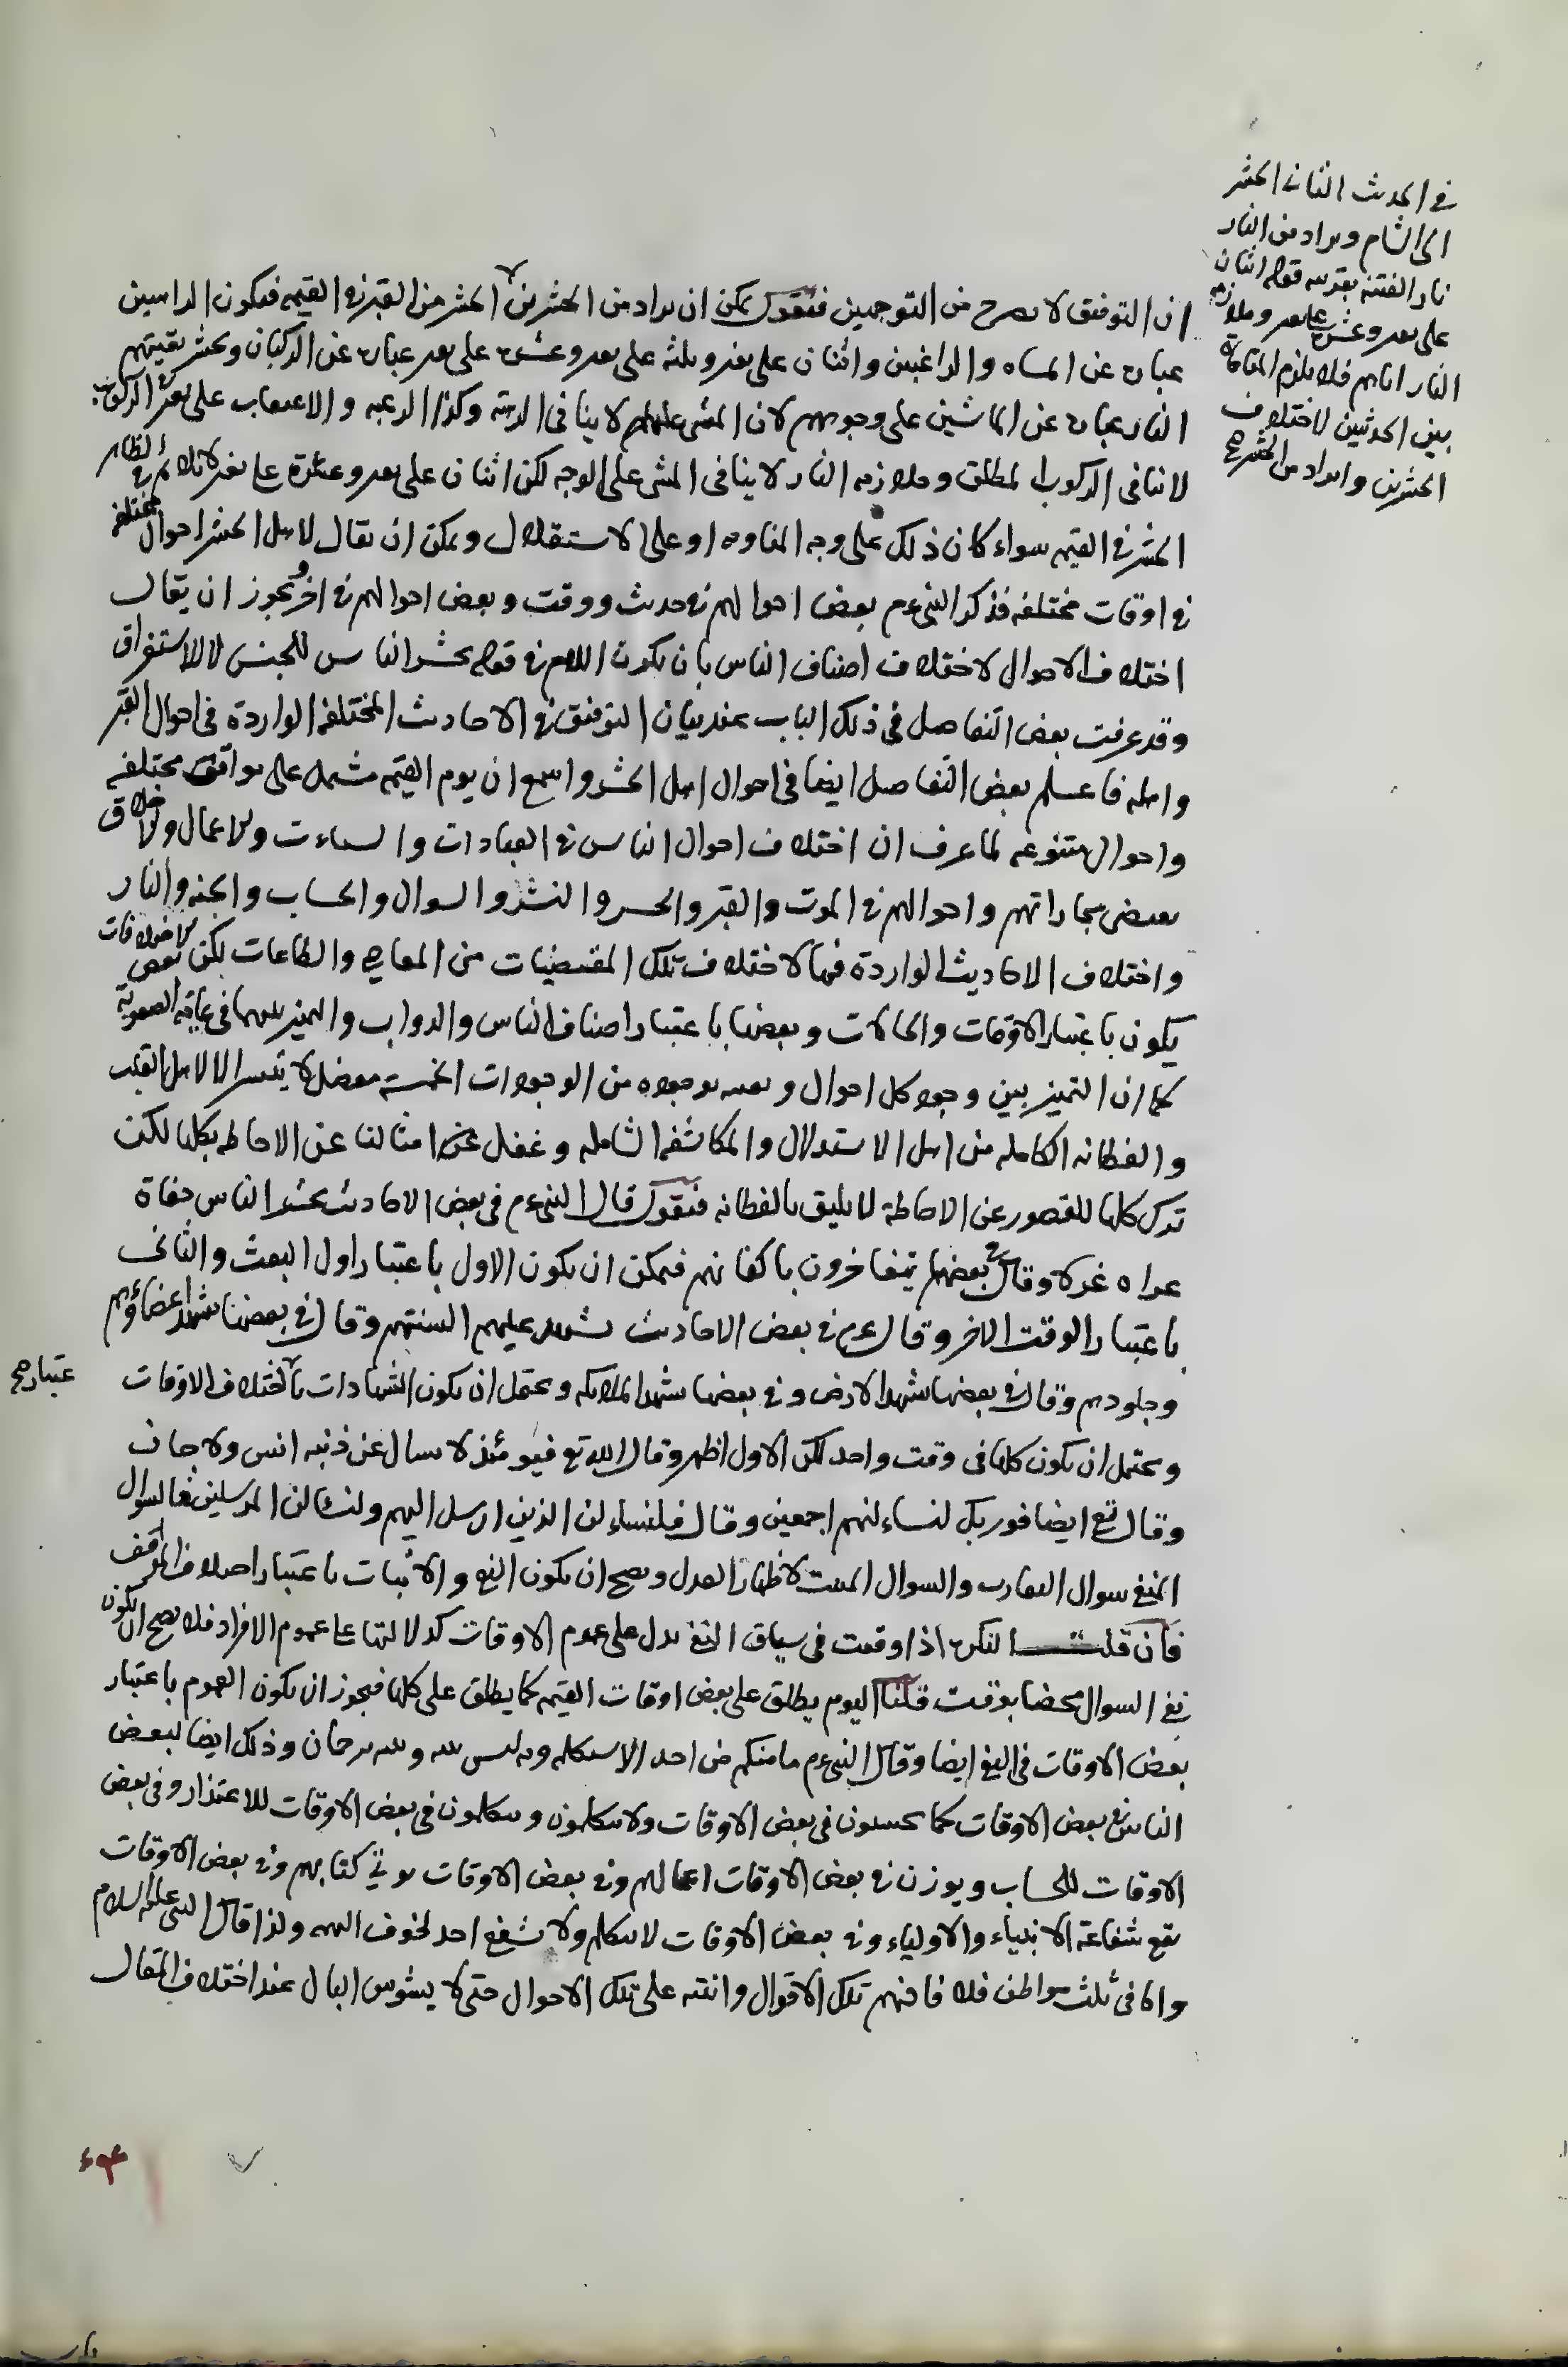 في الحديث الثاني الحشر
الى الشام ويراد من النار
نار الفتنه بقرينه قوله اثنان
على بعير وعشرة على بعير وملازمه
النار اياهم فلا يلزم المنافاة
بين الحديثين لاختلاف
الحشرين والمراد من الحشر صح
ان التوفيق لا يصرح من التوجيهين فنقول يمكن ان يراد من الحشرين الحشر من القبر في القيمه فيكون الراهبين
عبارة عن المشاة والراغبين واثنان على بعير وثلثه على بعير وعشرة على بعير عبارة عن الركبان وتحشر بقيتهم
النار عبارة عن الماشين على وجوههم لان المشي لا ينافى الرهبة وكذا الرغبه والاعتقاب على بعير
لا ينافى الركوب المطلق وملازمه النار لا ينافى المشي على الوجه لكن اثنان على بعير وعشرة على بعير الظاهر
الحشر في القيمه سواء كان ذلك على وجه المناوبه او على الاستقلال ويمكن ان يقال لاهل الحشر احوال مختلفه
في اوقات مختلفه فذكر النبي عم بعض احوالهم في حديث ووقت وبعض احوالهم في اخر ويجوز ان يقال
اختلاف الاحوال لاختلاف اصناف الناس بان يكون اللام في قوله يحشر الناس للجنس لا للاستغراق
وقد عرفت بعض التفاصيل في ذلك الباب عند بيان التوفيق في الاحاديث المختلفه الواردة في احوال القبر
واهله فاعلم بعض التفاصيل ايضا في احوال اهل الحشر واسمع ان يوم القيمه مشتمل على مواقف مختلفه
واحوال متنوعه لما عرف ان اختلاف احوال الناس في العبادات والسيئات والاعمال والاخلاق
بعض مجازاتهم واحوالهم في الموت والقبر والحشر والنشر والسوال والحساب والجنه والنار
واختلاف الاحاديث الواردة فيها لاختلاف تلك المقتضيات من المعاصي والطاعات لكن بعض الاختلافات
يكون باعتبار الاوقات والحالات وبعضها باعتبار اصناف الناس والدواب والتميز بينهما في غاية الصعوبة
كما ان التميز بين وجوه كل احوال بوجوه من الوجوهات الخمسه معضل لا يتيسر الا لاهل القلب
والفطانه الكامله من اهل الاستدلال والمكاشفه الشامله وغفل عنه امثالنا عن الاحاطه بكلها لكن
ترك كلها للقصور عن الاحاطة لا يليق بالفطانه فنقول قال النبي عم في بعض الاحاديث يحشر الناس حفاة
عراه غرلا وقال في بعضها يتفاخرون باكفانهم فيمكن ان يكون الاول باعتبار اول البعث والثاني
باعتبار الوقت الاخر وقال عم في بعض الاحاديث تشهد عليهم السنتهم وقال في بعضها تشهد اعضاؤهم
وجلودهم وقال في بعضها تشهد الارض وفي بعضها تشهد الملائكه ويحتمل ان يكون الشهادات باختلاف الاوقات
عتبار صح
ويحتمل ان يكون كلها في وقت واحد لكن الاول اظهر وقال الله تع فيومئذ لا يسال عن ذنبه انس ولا جان
وقال تع ايضا فوربك لنسئلنهم اجمعين وقال فلنسئلن الذين ارسل اليهم ولنسئلن المرسلين فالسوال
المنفي سوال التعارف والسوال المثبت لاظهار العدل ويصح ان يكون النفي والاثبات باعتبار اختلاف المواقف
فان قلت النكرة اذا وقعت في سياق النفي يدل على عموم الاوقات كدلالتها على عموم الافراد فلا يصح ان يكون
نفي السوال مختصا بوقت قلنا اليوم يطلق على بعض اوقات القيمه كما يطلق على كلها فيجوز ان يكون العموم باعتبار
بعض الاوقات في النفي ايضا وقال النبي عم ما منكم من احد الا سيكلمه ربه ليس بينه وبينه ترجمان وذلك ايضا لبعض
الناس في بعض الاوقات كما يحبسون في بعض الاوقات ولا يتكلمون ويتكلمون في بعض الاوقات للاعتذار وفي بعض
الاوقات للحساب ويوزن في بعض الاوقات اعمالهم وفي بعض الاوقات يوتي كتابهم وفي بعض الاوقات
يقع شفاعة الانبياء والاولياء وفي بعض الاوقات لا يتكلم ولا يشفع احد لخوف الهيبة ولذا قال النبي عليه السلام
واما في ثلث مواطن فلا فافهم تلك الاقوال وانتبه على تلك الاحوال حتى لا يشوش البال عند اختلاف المقال